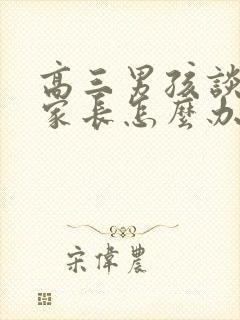 高三男孩談
家長怎麼办
宋偉農